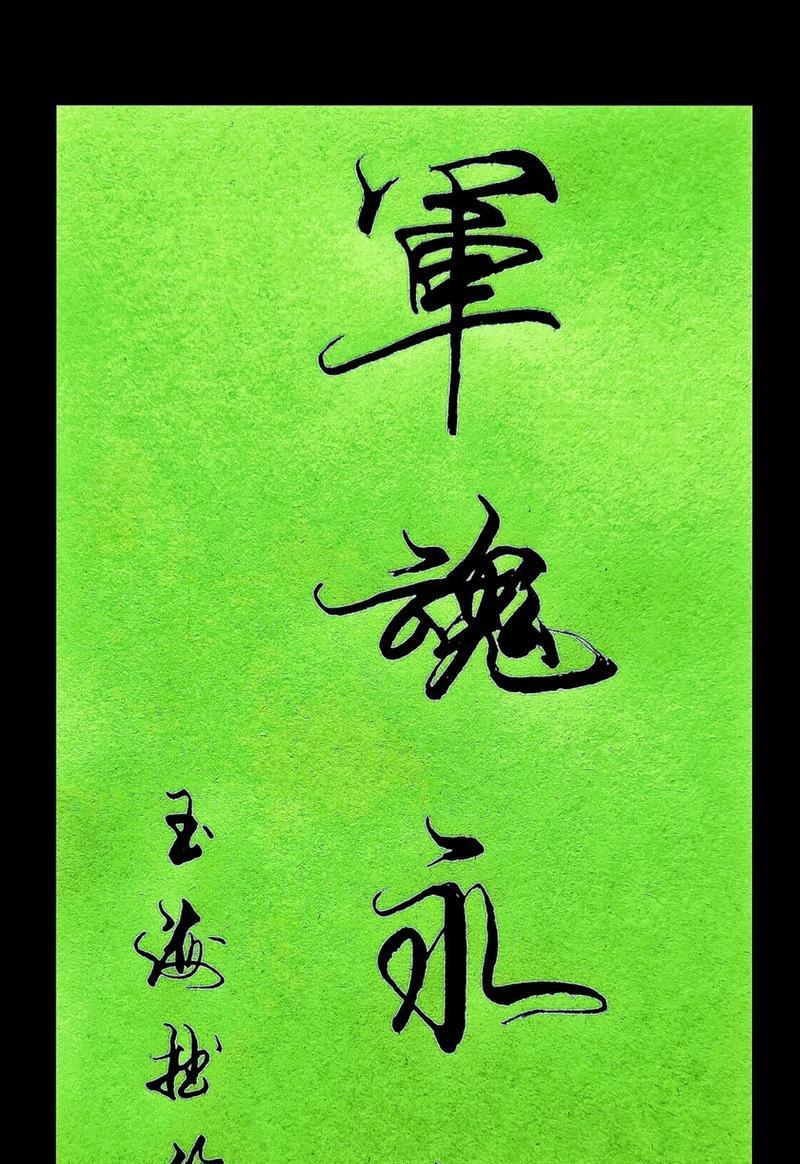 軍魂永
玉海拙